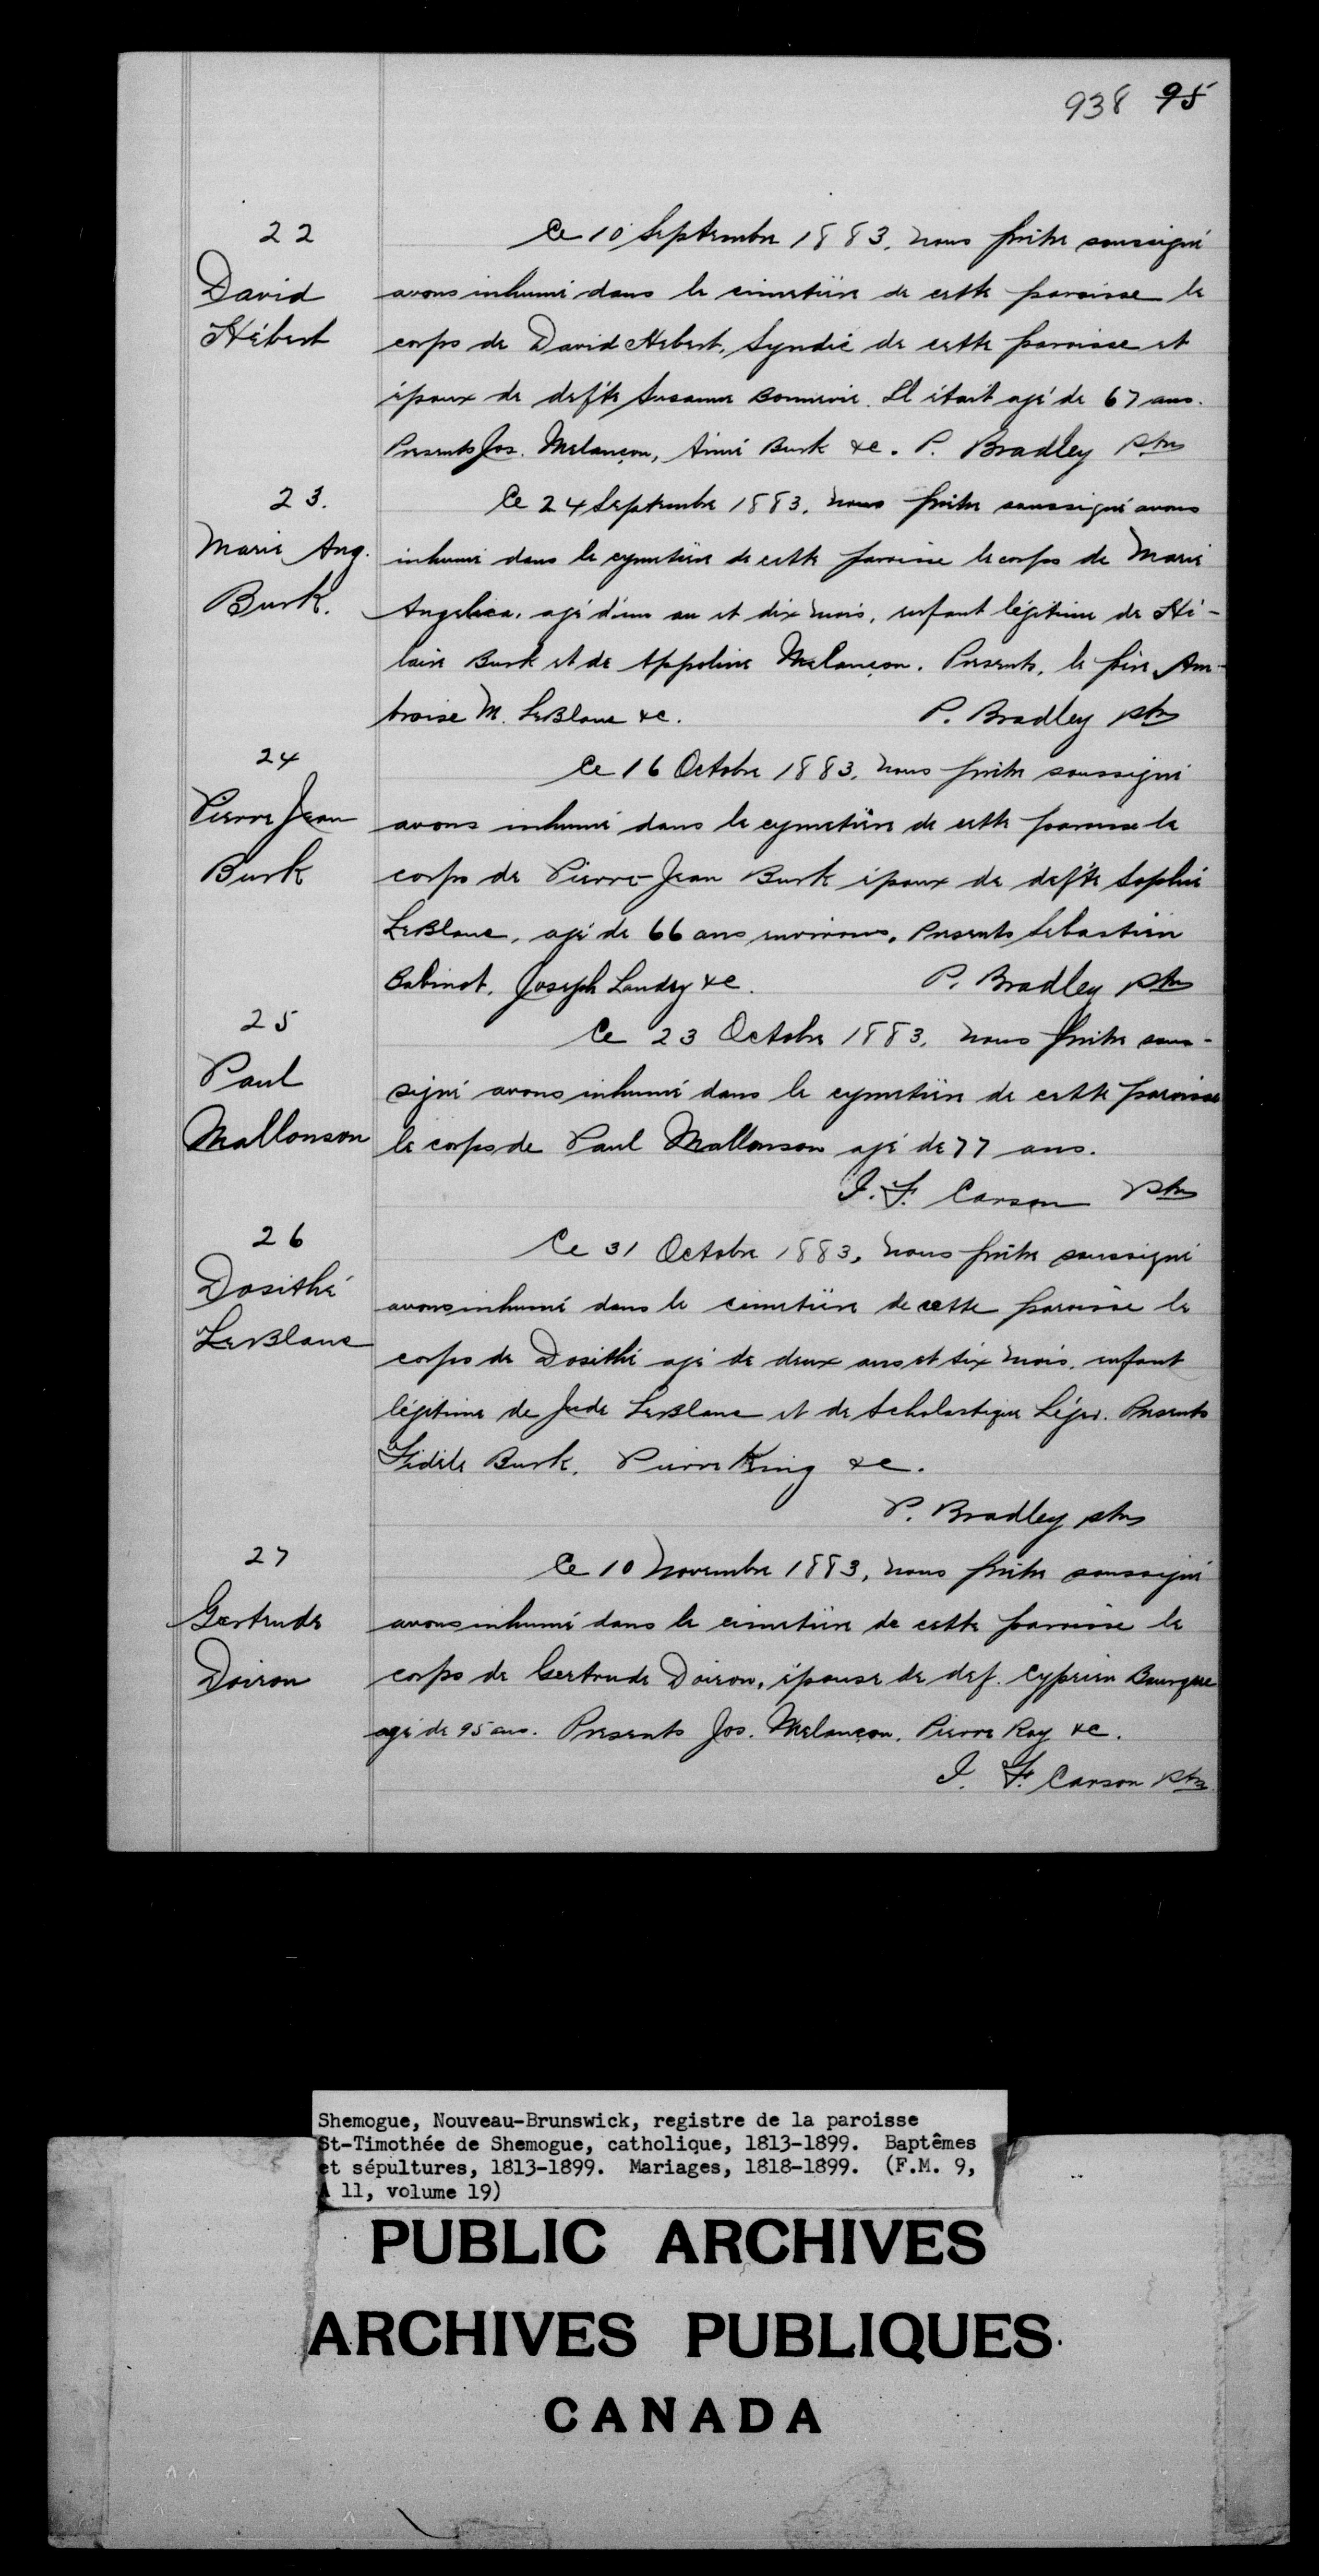 938 95
22
David
Hébert
Ce 10 Septembre 1883, nous prêtre soussigné
avons inhumé dans le cimetière de cette paroisse le
corps de David Hebert, Syndic de cette paroisse et
époux de defte Susanne Bonnevie. Il était agé de 67 ans.
Presents Jos. Melançon, Aimé Burk &c. P. Bradley Ptre
23.
Marie Ang.
Burk.
Ce 24 Septembre 1883, nous prêtre soussigné avons
inhumé dans le cymetière de cette paroisse le corps de Marie
Angelica, agé d'un an et dix mois, enfant légitime de Hi-
laire Burk et de Appoline Melançon. Presents, le père, Am-
broise M. LeBlanc &c. P. Bradley Ptre
24
Pierre Jean
Burk
Ce 16 Octobre 1883, nous prêtre soussigné
avons inhumé dans le cymetière de cette paroisse le
corps de Pierre-Jean Burk époux de defte Sophie
LeBlanc, agé de 66 ans environs. Presents Sebastien
Babinot, Joseph Landry &c. P. Bradley Ptre
25
Paul
Mallonson
Ce 23 Octobre 1883, nous prêtre sous-
signé avons inhumé dans le cymetière de cette paroisse
le corps de Paul Mallonson agé de 77 ans.
I. F. Carson Ptre
26
Dosithé
LeBlanc
Ce 31 Octobre 1883, nous prêtre soussigné
avons inhumé dans le cimetière de cette paroisse le
corps de Dosithé agé de deux ans et six mois, enfant
légitime de Jude LeBlanc et de Scholastique Léger. Presents
Fidèle Burk, Pierre King &c.
P. Bradley ptre
27
Gertrude
Doiron
Ce 10 Novembre 1883, nous prêtre soussigné
avons inhumé dans le cimetière de cette paroisse le
corps de Gertrude Doiron, épouse de def. Cyprien Bourque
agé de 95 ans. Presents Jos. Melançon, Pierre Roy &c.
I. F. Carson Ptre.
Shemogue, Nouveau-Brunswick, registre de la paroisse
St-Timothée de Shemogue, catholique, 1813-1899. Baptêmes
et sépultures, 1813-1899. Mariages, 1818-1899. (F.M. 9,
A 11, volume 19)
PUBLIC ARCHIVES
ARCHIVES PUBLIQUES
CANADA